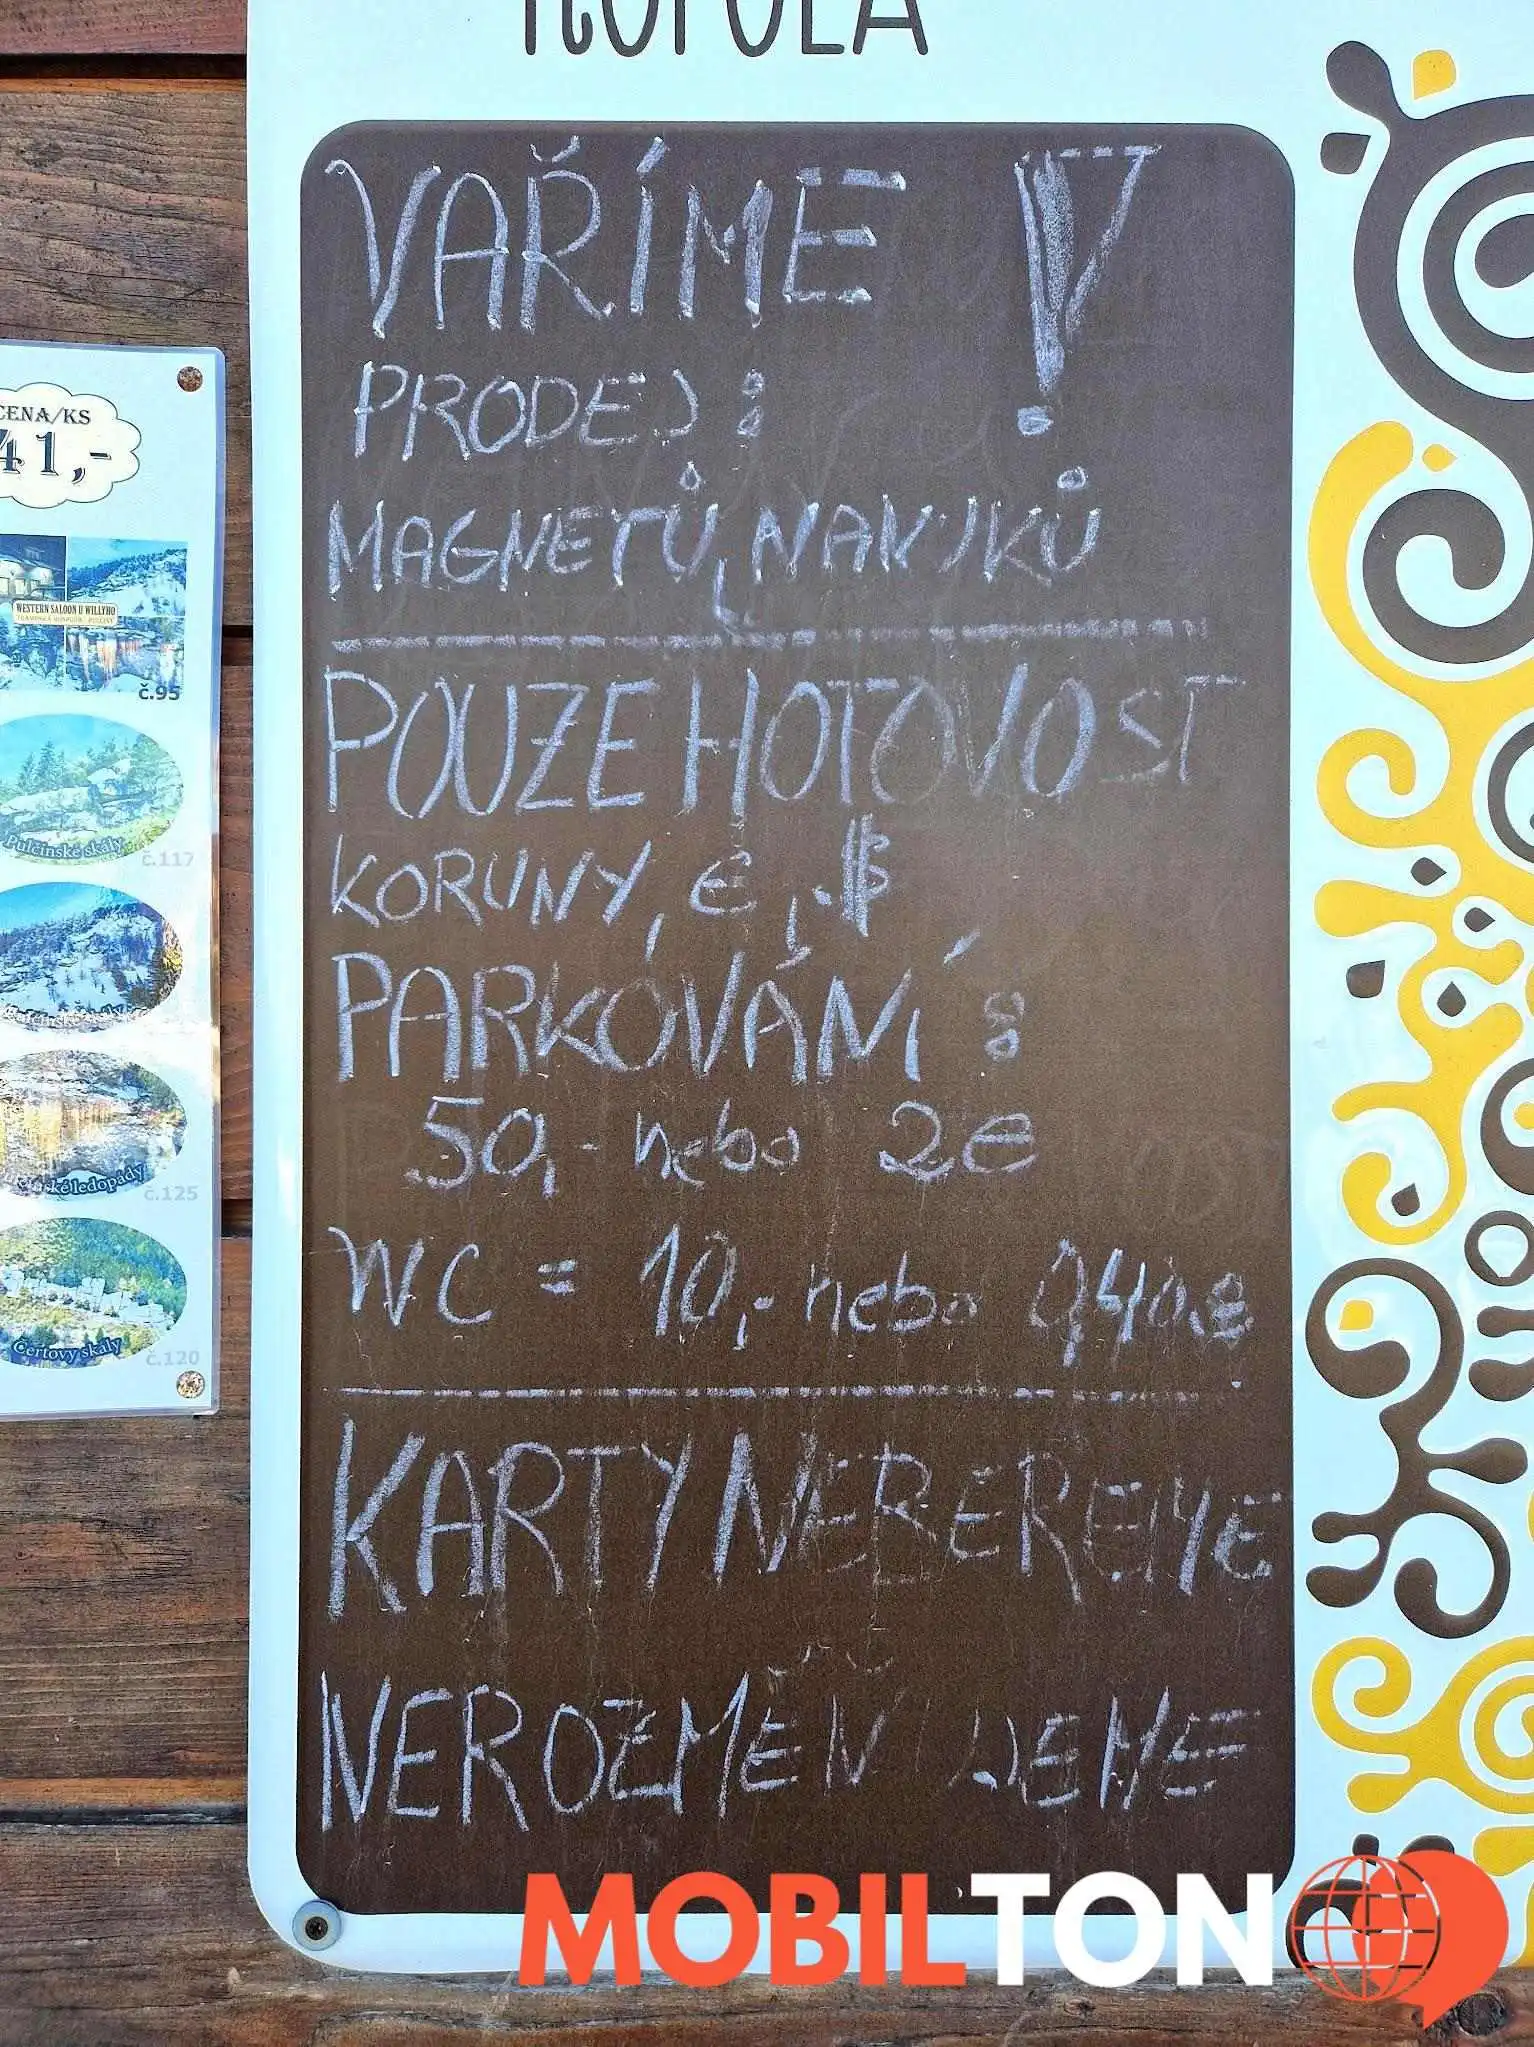 KOFOLA
VAŘÍME !
PRODEJ :
MAGNETŮ, NANUKŮ
POUZE HOTOVOST
KORUNY, €, $
PARKOVÁNÍ :
50,- nebo 2€
WC = 10,- nebo 0,40
KARTY NEBEREME
NEROZMĚŇUJEME
CENA/KS
41,-
WESTERN SALOON U WILLYHO
č.95
Pulčínské skály
č.117
ledopády
č.125
Čertovy skály
č.120
MOBILTON